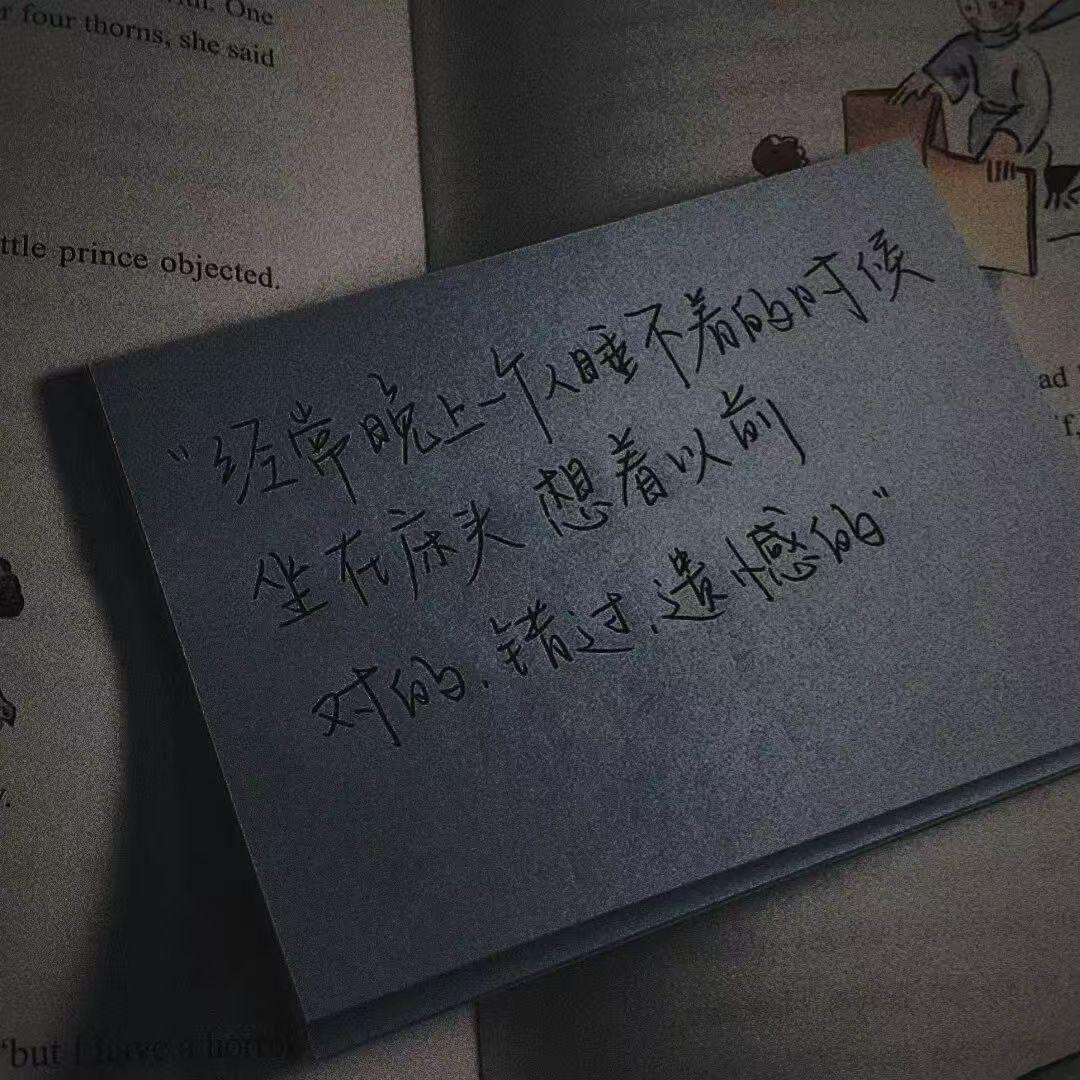 with. One
r four thorns, she said
ttle prince objected.
"经常晚上一个人睡不着的时候
坐在床头 想着以前
对的.错过.遗憾的"
ad
"but I have a horro